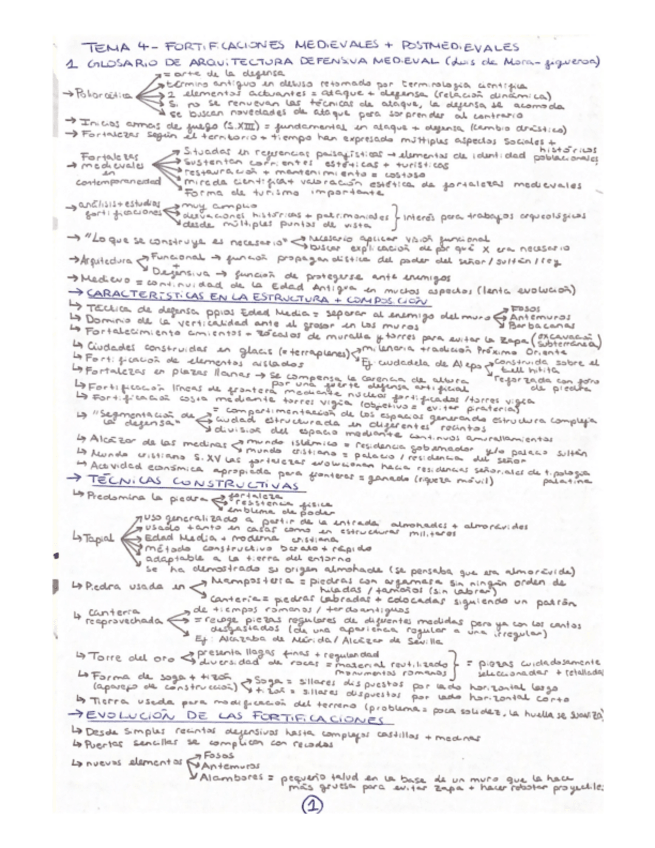 TEMA 4- FORTIFICACIONES MEDIEVALES + POSTMEDIEVALES
1 GLOSARIO DE ARQUITECTURA DEFENSIVA MEDIEVAL (Luis de Mora-Figueroa)
= arte de la defensa
término antiguo en desuso retomado por terminología científica
→ Poliorcética
2 elementos actuantes = ataque + defensa (relación dinámica)
Si no se renuevan las técnicas de ataque, la defensa se acomoda
se buscan novedades de ataque para sorprender al contrario
→ Inicios armas de fuego (S.XIII) = fundamental en ataque + defensa (cambio drástico)
→ Fortalezas según el territorio + tiempo han expresado múltiples aspectos sociales + históricos
→ Fortalezas medievales en contemporaneidad
Situadas en referencias paisajísticas → elementos de identidad poblacionales
Sustentan corrientes estéticas + turísticas
restauración + mantenimiento = costoso
mirada científica + valoración estética de fortalezas medievales
Forma de turismo importante
→ análisis + estudios fortificaciones
muy amplio
derivaciones históricas + patrimoniales
desde múltiples puntos de vista
} interés para trabajos arqueológicos
→ "Lo que se construye es necesario"
necesario aplicar visión funcional
buscar explicación de por qué X era necesario
→ Arquitectura
Funcional → función propagandística del poder del señor/sultán/rey
+
Defensiva → función de protegerse ante enemigos
→ Medievo = continuidad de la Edad Antigua en muchos aspectos (lenta evolución)
→ CARACTERÍSTICAS EN LA ESTRUCTURA + COMPOSICIÓN
↳ Técnica de defensa ppios Edad Media = separar al enemigo del muro
Fosos
Antemuros
Barbacanas
↳ Dominio de la verticalidad ante el grosor en los muros
↳ Fortalecimiento cimientos = zócalos de muralla y torres para evitar la zapa (excavación subterránea)
↳ Ciudades construidas en glacis (+ terraplenes)
milenaria tradición Próximo Oriente
Ej: ciudadela de Alepo
Construida sobre el tell hitita
reforzada con foro de piedra
↳ Fortificación de elementos aislados
↳ Fortalezas en plazas llanas → se compensa la carencia de altura por una fuerte defensa artificial
↳ Fortificación líneas de frontera mediante núcleos fortificados/torres vigía
↳ Fortificación costa mediante torres vigía (objetivo = evitar piratería)
↳ "Segmentación de la defensa"
= compartimentación de los espacios generando estructura compleja
ciudad estructurada en diferentes recintos
división del espacio mediante continuos amurallamientos
↳ Alcázar de las medinas
mundo islámico = residencia gobernador y/o palacio sultán
mundo cristiano = palacio / residencia del señor
↳ Mundo cristiano S.XV las fortalezas evolucionan hacia residencias señoriales de tipología palatina
↳ Actividad económica apropiada para fronteras = ganado (riqueza móvil)
→ TÉCNICAS CONSTRUCTIVAS
↳ Predomina la piedra
fortaleza
resistencia física
emblema de poder
↳ Tapial
uso generalizado a partir de la entrada almohades + almorávides
usado tanto en casas como en estructuras militares
Edad Media + moderna cristiana
método constructivo barato + rápido
adaptable a la tierra del entorno
se ha demostrado su origen almohade (se pensaba que era almorávide)
↳ Piedra usada en
Mampostería = piedras con argamasa sin ningún orden de hiladas/tamaños (sin labrar)
Cantería = piedras labradas + colocadas siguiendo un patrón
↳ Cantería reaprovechada
de tiempos romanos / tardoantiguos
= recoge piezas regulares de diferentes medidas pero ya con los cantos desgastados (da una apariencia regular a una irregular)
Ej: Alcazaba de Mérida/Alcázar de Sevilla
↳ Torre del oro
presenta llagas finas + regularidad
diversidad de rocas = material reutilizado monumentos romanos
} = piezas cuidadosamente seleccionadas + retalladas
↳ Forma de soga + tizón (aparejo de construcción)
Soga = sillares dispuestos por lado horizontal largo
tizón = sillares dispuestos por lado horizontal corto
↳ Tierra usada para modificación del terreno (problema = poca solidez, la huella se suaviza)
→ EVOLUCIÓN DE LAS FORTIFICACIONES
↳ Desde simples recintos defensivos hasta complejos castillos + medinas
↳ Puertas sencillas se complican con recodos
↳ nuevos elementos
Fosos
Antemuros
Alambores = pequeño talud en la base de un muro que la hace más gruesa para evitar zapa + hacer rebotar proyectiles
1